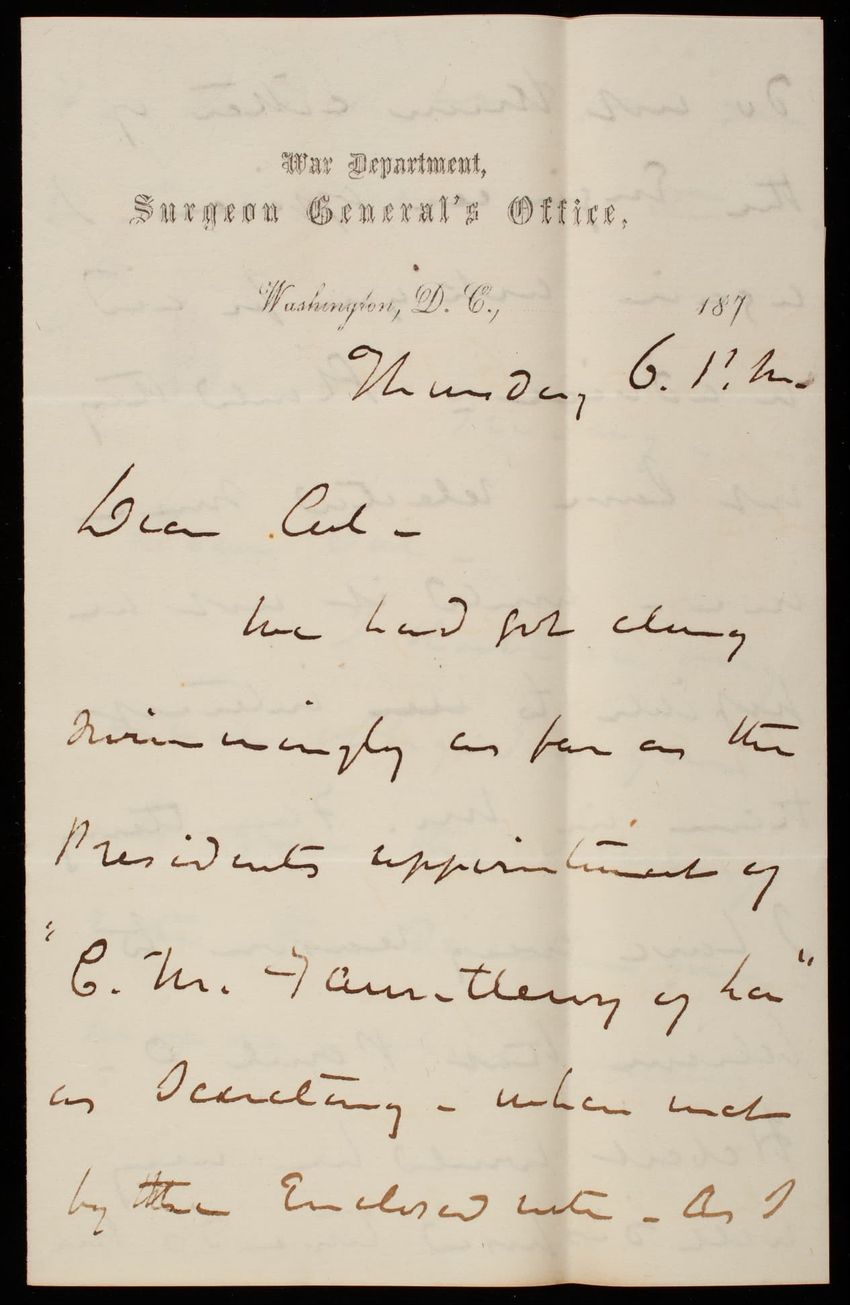 War Department,
Surgeon General's Office,
Washington, D. C., 187
Thursday 6. P. M.
Dear Col -
We had got along
swimmingly as far as the
Presidents appointment of
"C. M. Fauntleroy of La"
as Secretary - when met
by the Enclosed note - As I